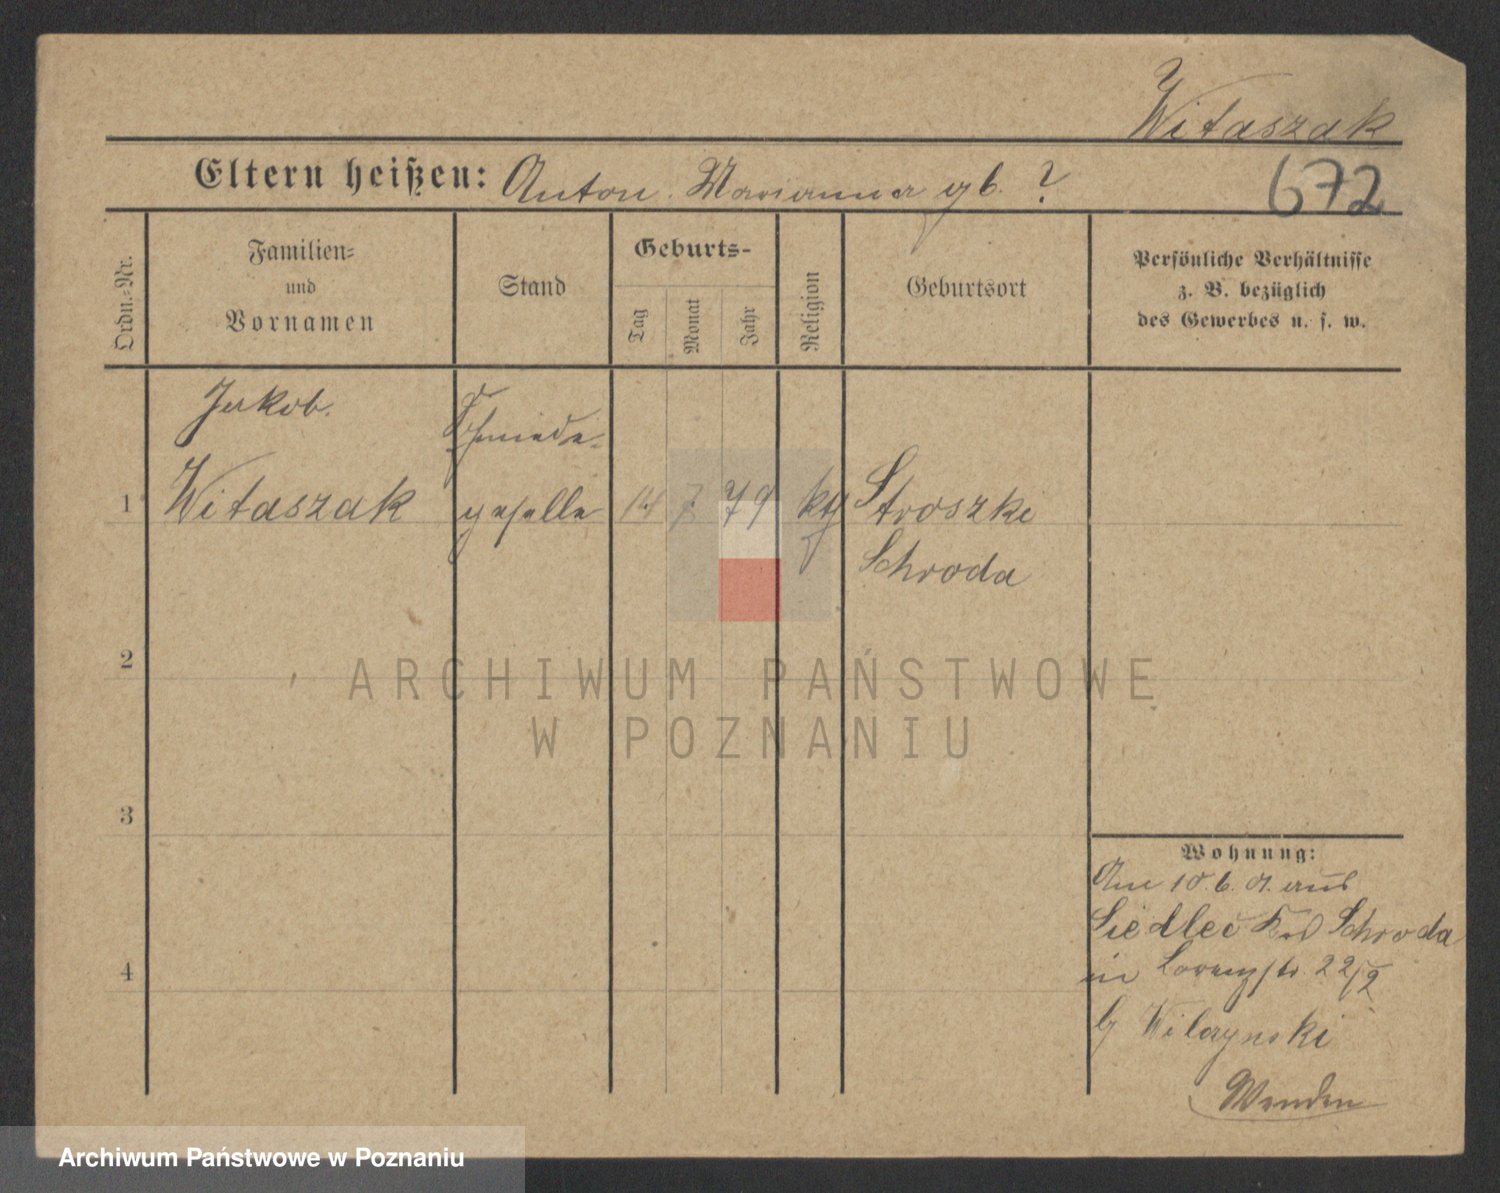 Witaszak
Eltern heißen: Anton. Marianna gb. ?
672
Ordn.-Nr.
Familien-
und
Vornamen
Stand
Geburts-
Tag
Monat
Jahr
Religion
Geburtsort
Persönliche Verhältnisse
z. B. bezüglich
des Gewerbes u. s. w.
Jakob.
Schmiede-
1 Witaszak geselle 14 7. 79 kth Stroszki
Schroda
2
3
4
Wohnung:
Am 10. 6. 01. aus
Siedlec Krs Schroda
in Lorenzstr. 22/2
b/ Wilczynski
Wenden
ARCHIWUM PAŃSTWOWE
W POZNANIU
Archiwum Państwowe w Poznaniu